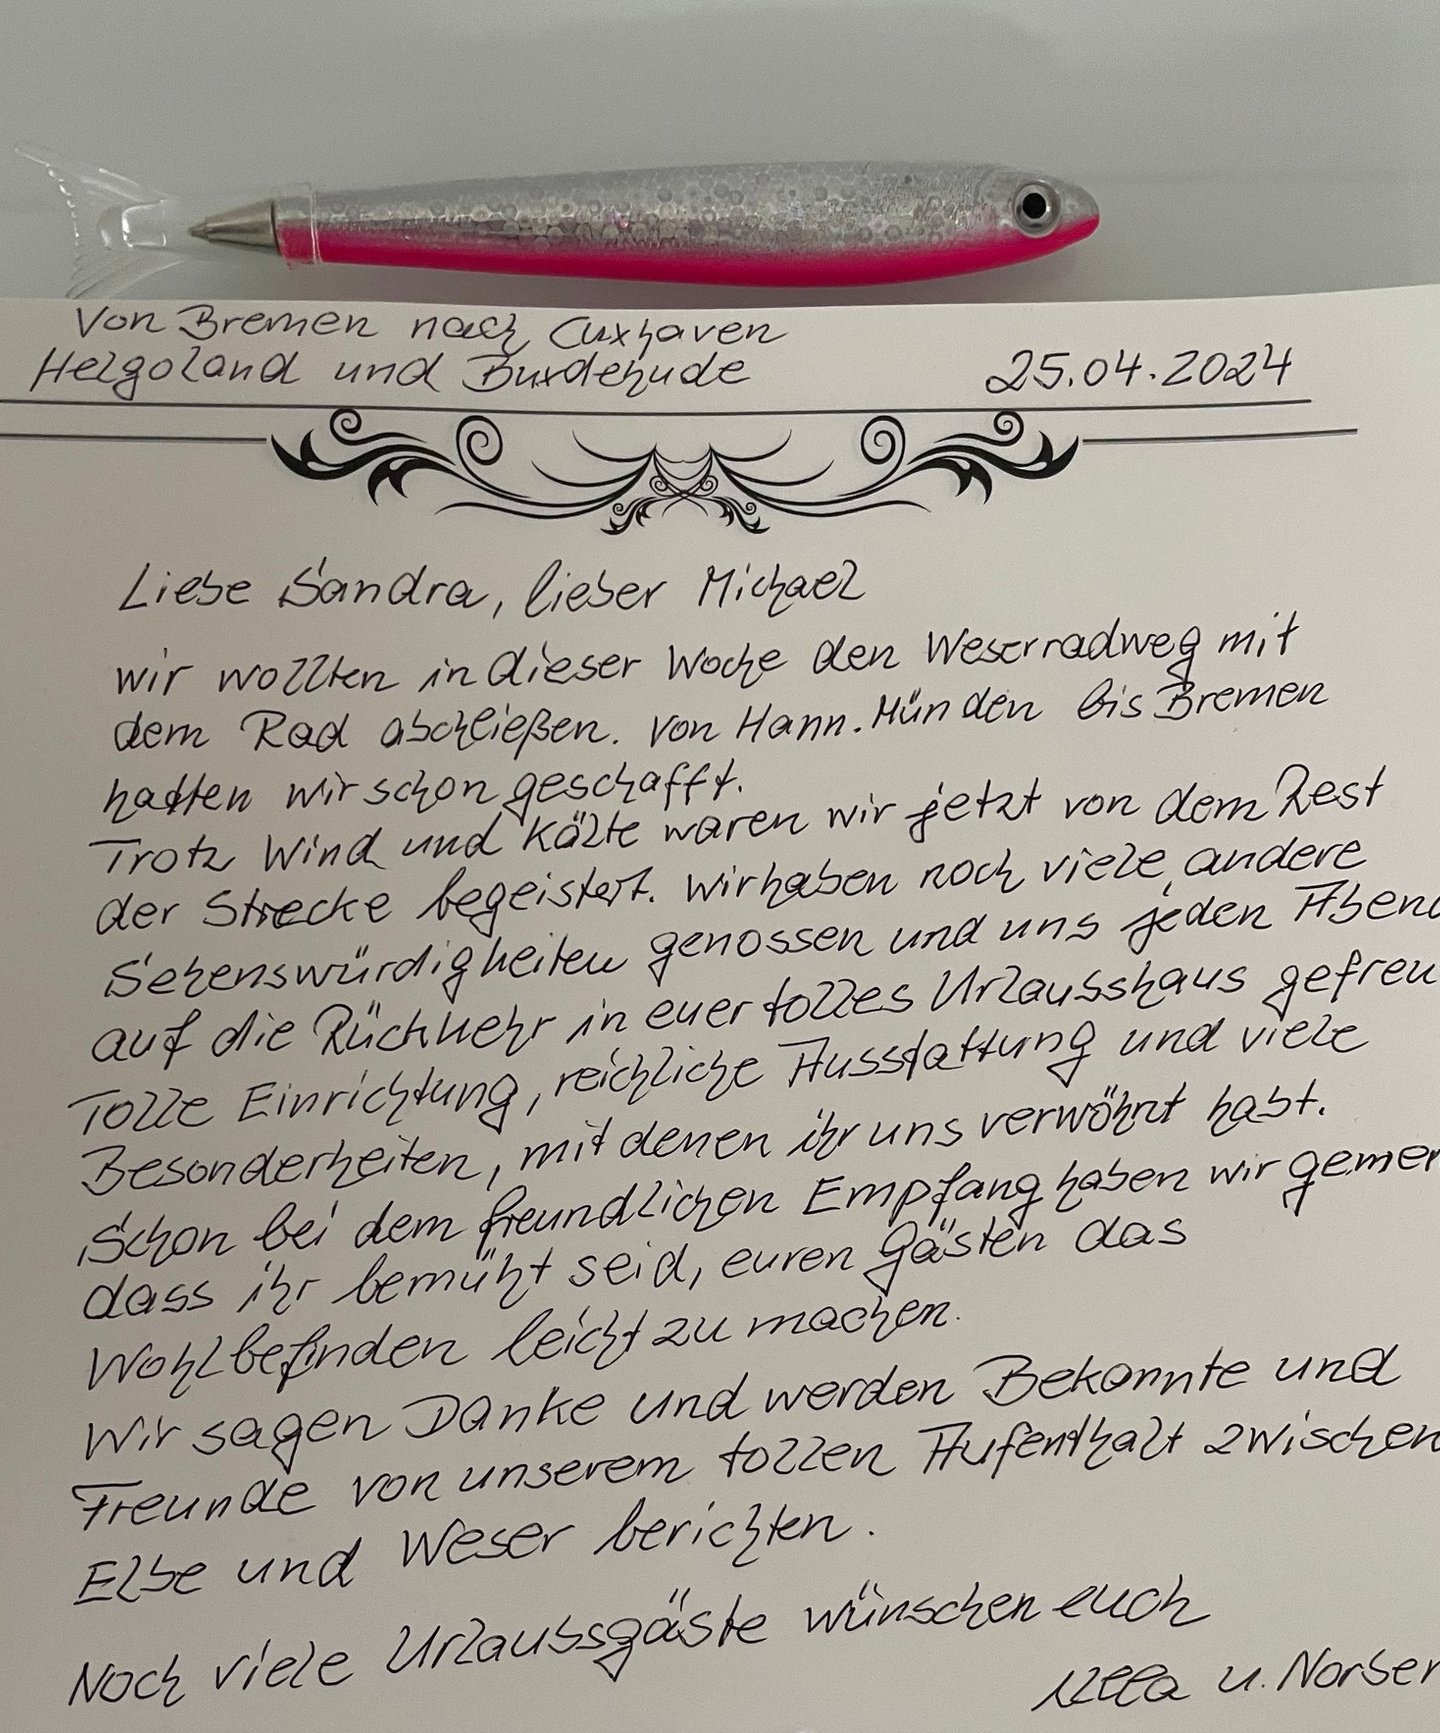 Von Bremen nach Cuxhaven
Helgoland und Buxdehude 25.04.2024
Liebe Sandra, lieber Michael
wir wollten in dieser Woche den Weserradweg mit
dem Rad abschließen. Von Hann. Münden bis Bremen
hatten wir schon geschafft.
Trotz Wind und Kälte waren wir jetzt von dem Rest
der Strecke begeistert. Wir haben noch viele andere
Sehenswürdigkeiten genossen und uns jeden Aben
auf die Rückkehr in euer tolles Urlaubshaus gefreu
Tolle Einrichtung, reichliche Ausstattung und viele
Besonderheiten, mit denen ihr uns verwöhnt habt.
Schon bei dem freundlichen Empfang haben wir gemer
dass ihr bemüht seid, euren Gästen das
Wohlbefinden leicht zu machen.
Wir sagen Danke und werden Bekannte und
Freunde von unserem tollen Aufenthalt zwischen
Elbe und Weser berichten.
Noch viele Urlaubsgäste wünschen euch
u. Norber